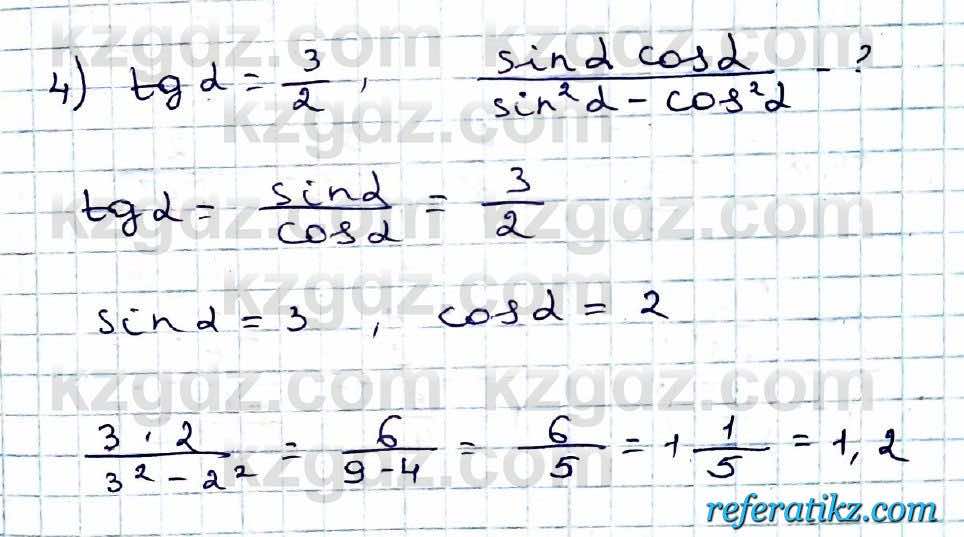 kzgdz.com kzgdz.com
4) tg α = 3/2 , sin α cos α / sin²α - cos²α - ?
kzgdz.com kzgdz.com
tg α = sin α / cos α = 3/2
kzgdz.com kzgdz.com
sin α = 3 , cos α = 2
kzgdz.com kzgdz.com
3 · 2 / 3² - 2² = 6 / 9 - 4 = 6/5 = 1 1/5 = 1,2
kzgdz.com
referatikz.com